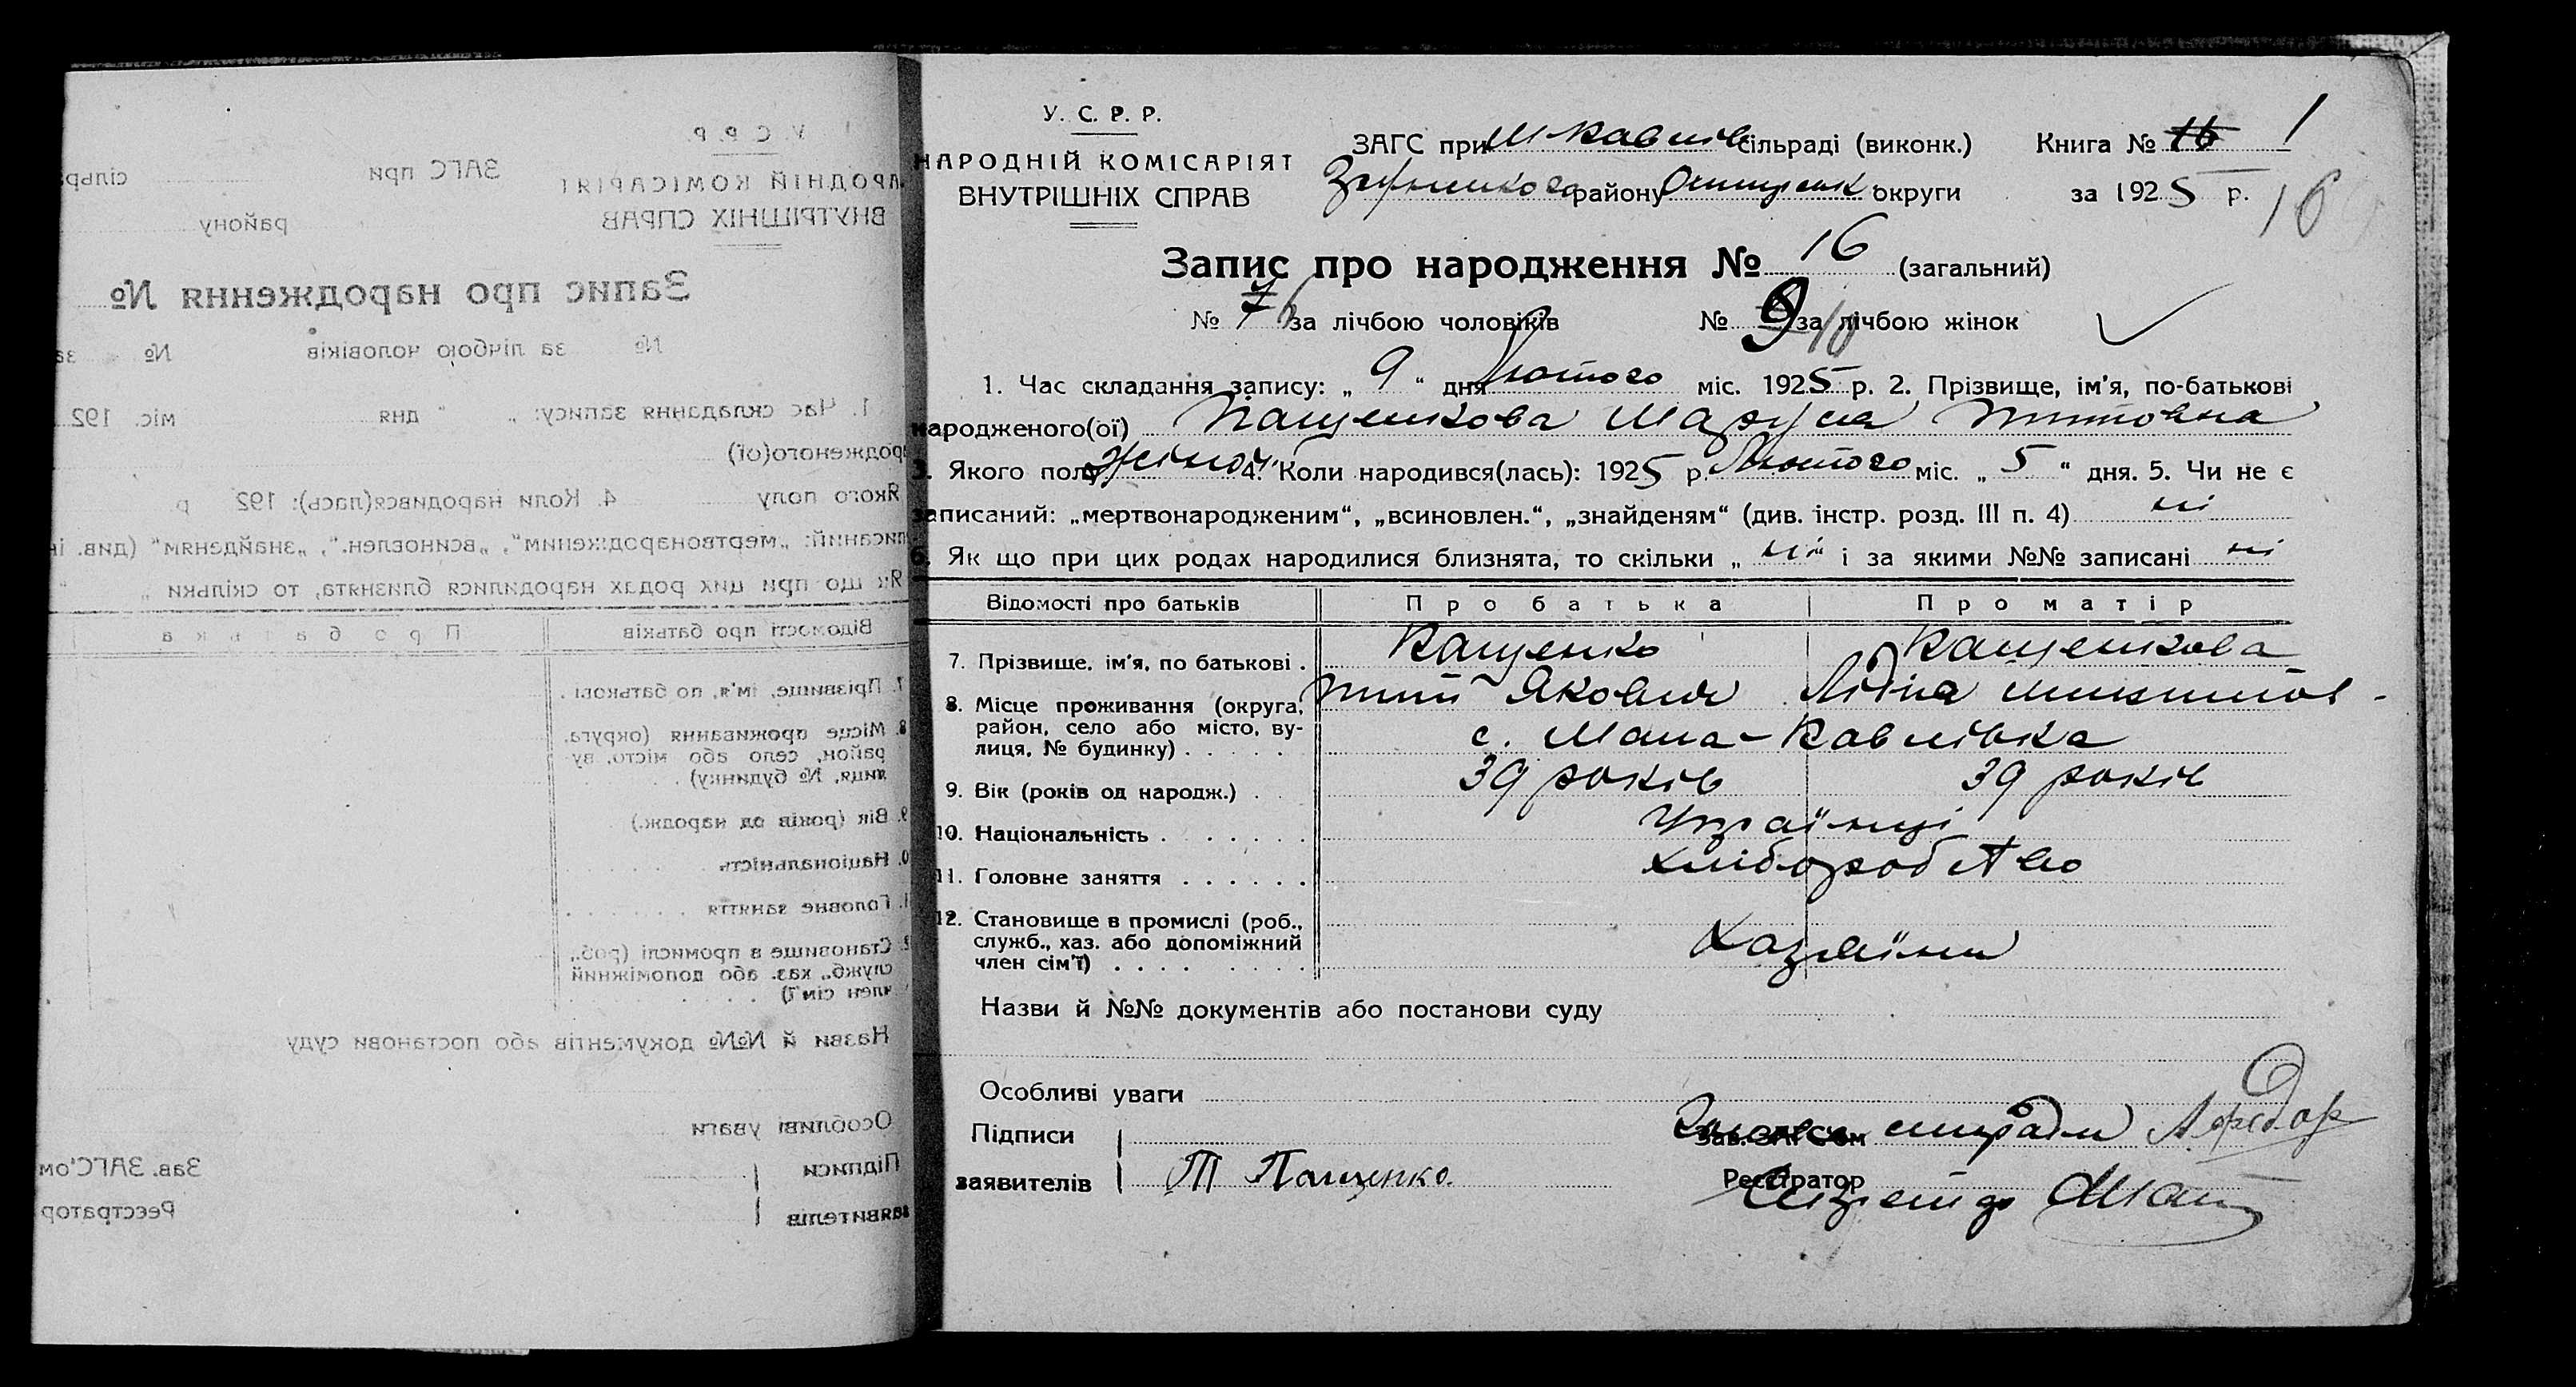 У. С. Р. Р.
НАРОДНІЙ КОМІСАРІЯТ
ВНУТРІШНІХ СПРАВ
ЗАГС при М Павлів сільраді (виконк.) Книга № 16 1
району округи за 1925 р. 16
Запис про народження № 16 (загальний)
№ 7 6 за лічбою чоловіків № 9 10 за лічбою жінок
1. Час складання запису: „ 9 “ дня Лютого міс. 1925 р. 2. Прізвище, ім’я, по-батькові
народженого(ої) Пащенкова Маруся Титовна
3. Якого полу жіноч. 4. Коли народився(лась): 1925 р. Лютого міс. „ 5 “ дня. 5. Чи не є
записаний: „мертвонародженим“, „всиновлен.“, „знайденям“ (див. інстр. розд. III п. 4) ні
6. Як що при цих родах народилися близнята, то скільки „ ні “ і за якими №№ записані ні
Відомості про батьків Про батька Про матір
7. Прізвище, ім’я, по батькові . Пащенко Пащенкова
Тит Якович
8. Місце проживання (округа, район, село або місто, вулиця, № будинку) . . . . . с. Мала-Павлівка
9. Вік (років од народж.) . . 39 років 39 років
10. Національність . . . . . . Українці
11. Головне заняття . . . . . . хліборобство
12. Становище в промислі (роб., служб., хаз. або допоміжний член сім’ї) . . . . . . . . Хазяїни
Назви й №№ документів або постанови суду
Особливі уваги
Підписи
заявителів Т Пащенко.
Зав. ЗАГС’ом Голова сільради
Реєстратор Секретар